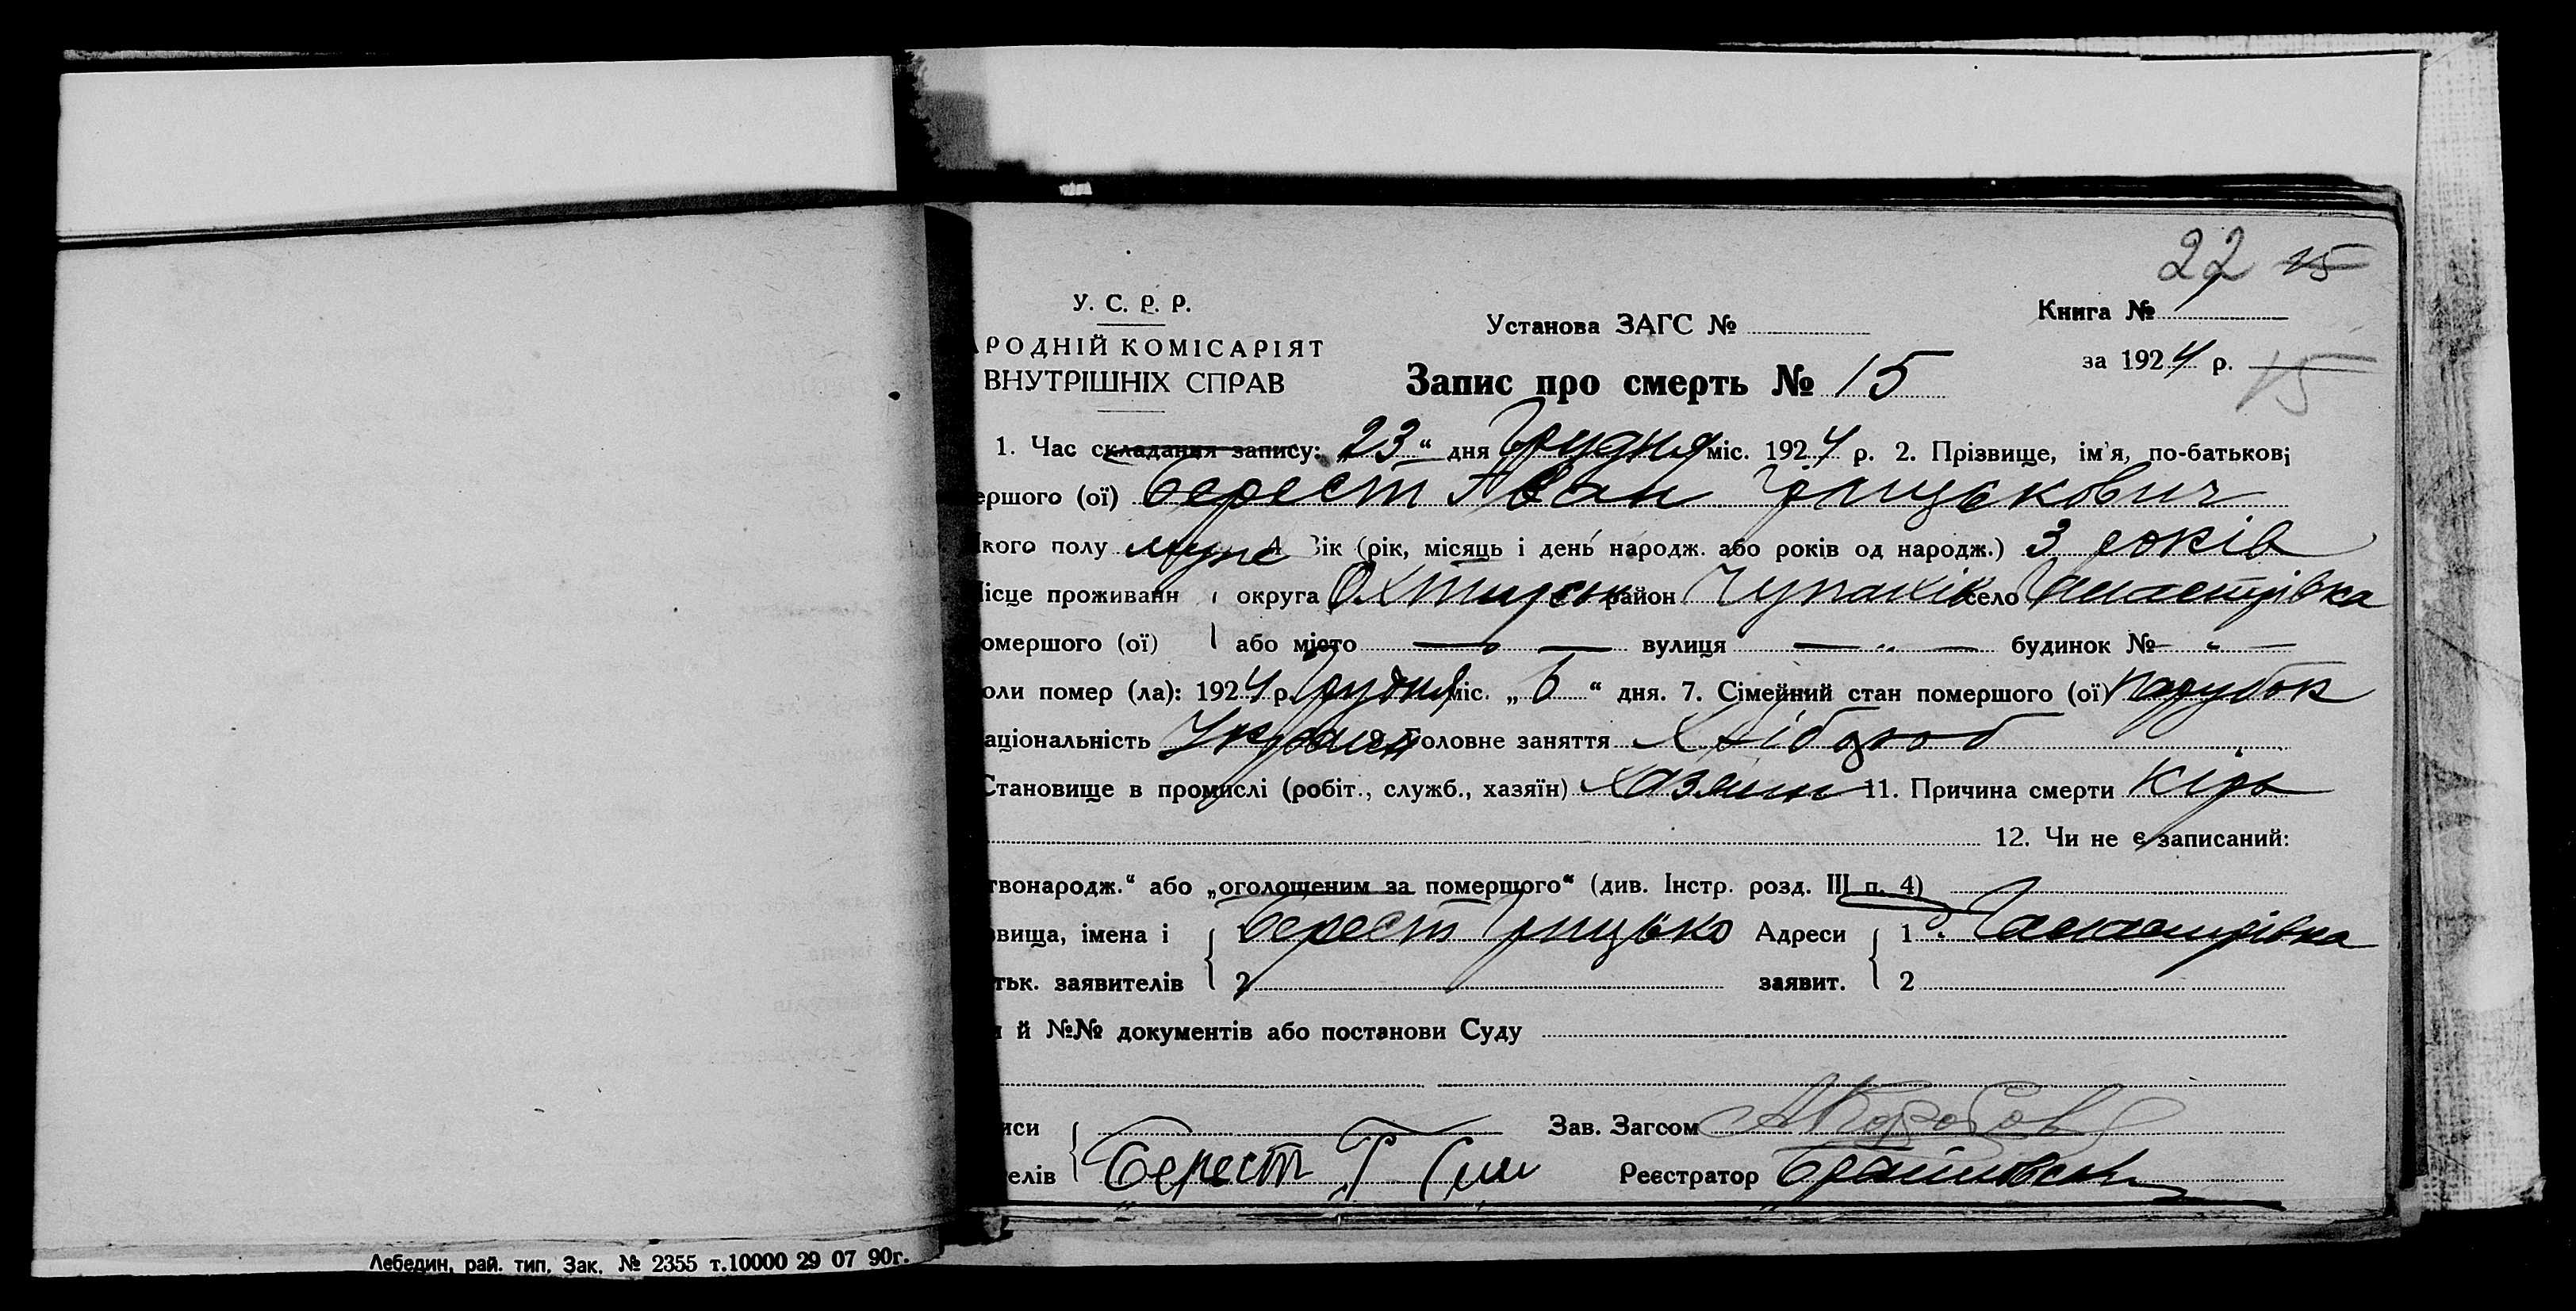 22 15
У. С. Р. Р.
РОДНІЙ КОМІСАРІЯТ
ВНУТРІШНІХ СПРАВ
Установа ЗАГС №
Книга №
за 1924 р.
15
Запис про смерть № 15
1. Час складання запису: „23“ дня Грудня міс. 1924 р. 2. Прізвище, ім'я, по-батькові
ершого (ої) Берест Іван Грицькович
кого полу муж 4 Вік (рік, місяць і день народж. або років од народж.) 3 років
ісце проживанн округа Охтирськ район Чупахів село
омершого (ої) або місто — „ — вулиця — „ — будинок № — „ —
оли помер (ла): 1924 р. Грудня міс. „ 6 “ дня. 7. Сімейний стан помершого (ої) парубок
аціональність Україн 9. Головне заняття Хлібороб
Становище в промислі (робіт., служб., хазяїн) хазяин 11. Причина смерти кір
12. Чи не є записаний:
твонародж.“ або „оголошеним за померщого“ (див. Інстр. розд. III п. 4)
вища, імена і 1 Берест Грицько Адреси 1
тьк. заявителів 2 заявит. 2
й №№ документів або постанови Суду
иси Зав. Загсом
елів Берест Г Реєстратор
Лебедин, рай. тип. Зак. № 2355 т.10000 29 07 90г.